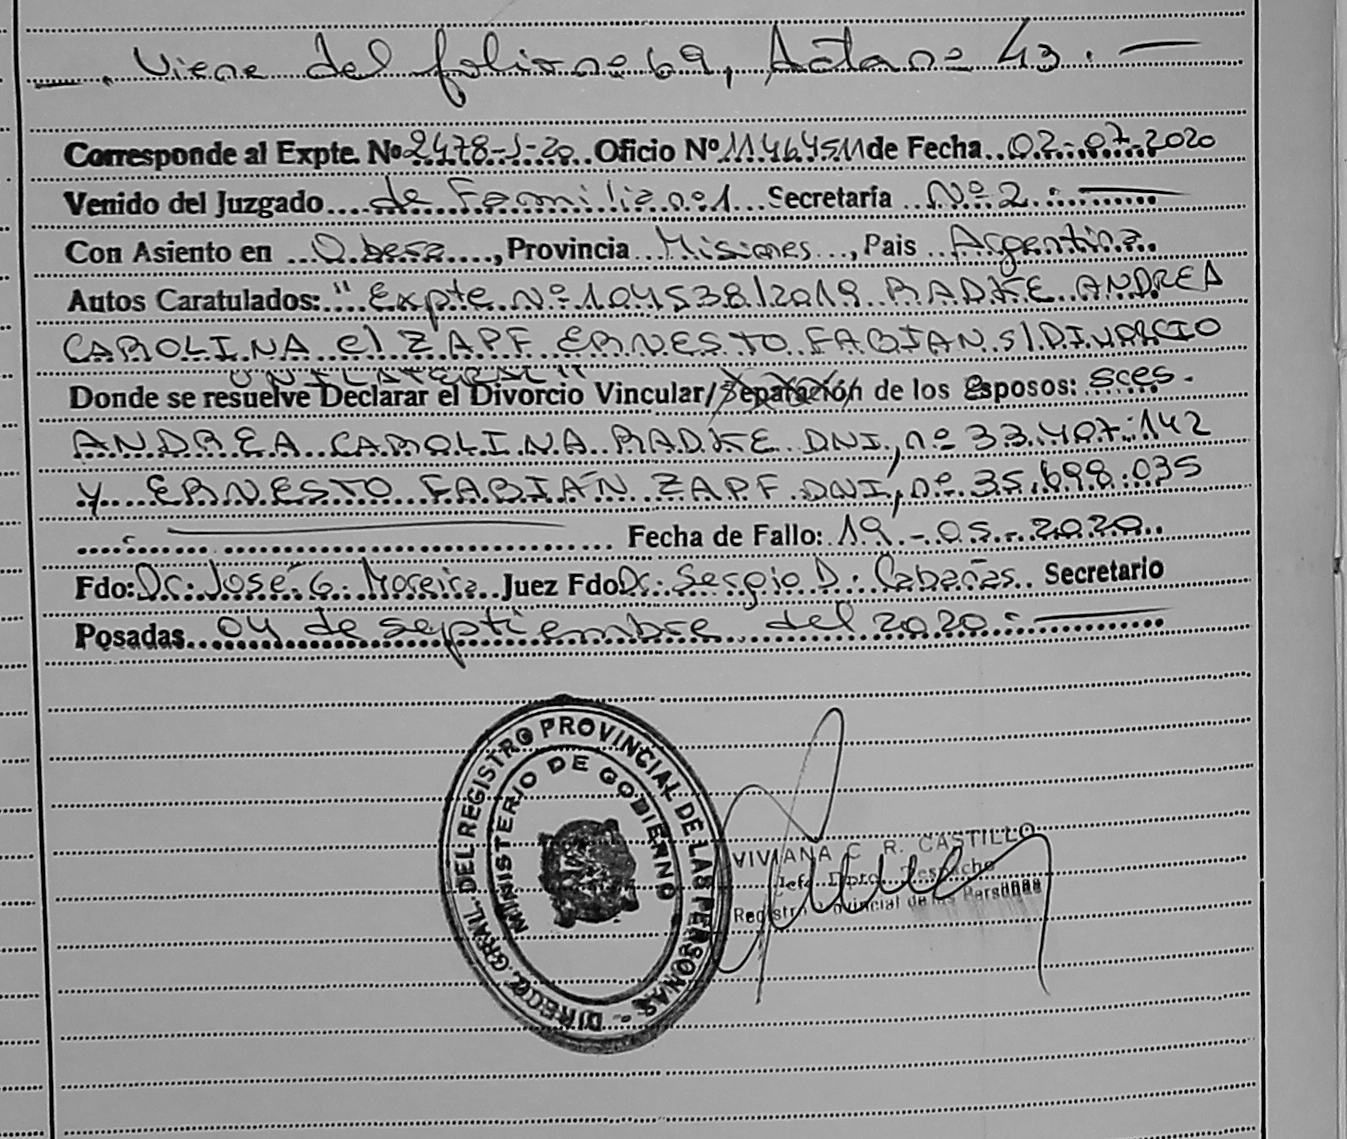 Viene del folio nº 69, Acta nº 43.
Corresponde al Expte. Nº 2478-J-20 Oficio Nº 11464511 de Fecha 02-07-2020
Venido del Juzgado de Familia nº 1 Secretaría Nº 2.
Con Asiento en Obera, Provincia Misiones, Pais Argentina
Autos Caratulados: "Expte. Nº 104538/2019 RADKE ANDREA
CAROLINA C/ ZAPF ERNESTO FABIAN S/DIVORCIO
UNILATERAL"
Donde se resuelve Declarar el Divorcio Vincular/Separación de los Esposos: sres.
ANDREA CAROLINA RADKE DNI, nº 33.407.142
y ERNESTO FABIÁN ZAPF DNI, nº 35.698.035
Fecha de Fallo: 19-05-2020
Fdo: Dr. José G. Moreira Juez Fdo Dr. Sergio D. Cabañas Secretario
Posadas 04 de septiembre del 2020.
DIRECC. GRAL. DEL REGISTRO PROVINCIAL DE LAS PERSONAS -
MINISTERIO DE GOBIERNO
VIVIANA C. R. CASTILLO
Jefe Dpto. Despacho
Registro Provincial de las Personas